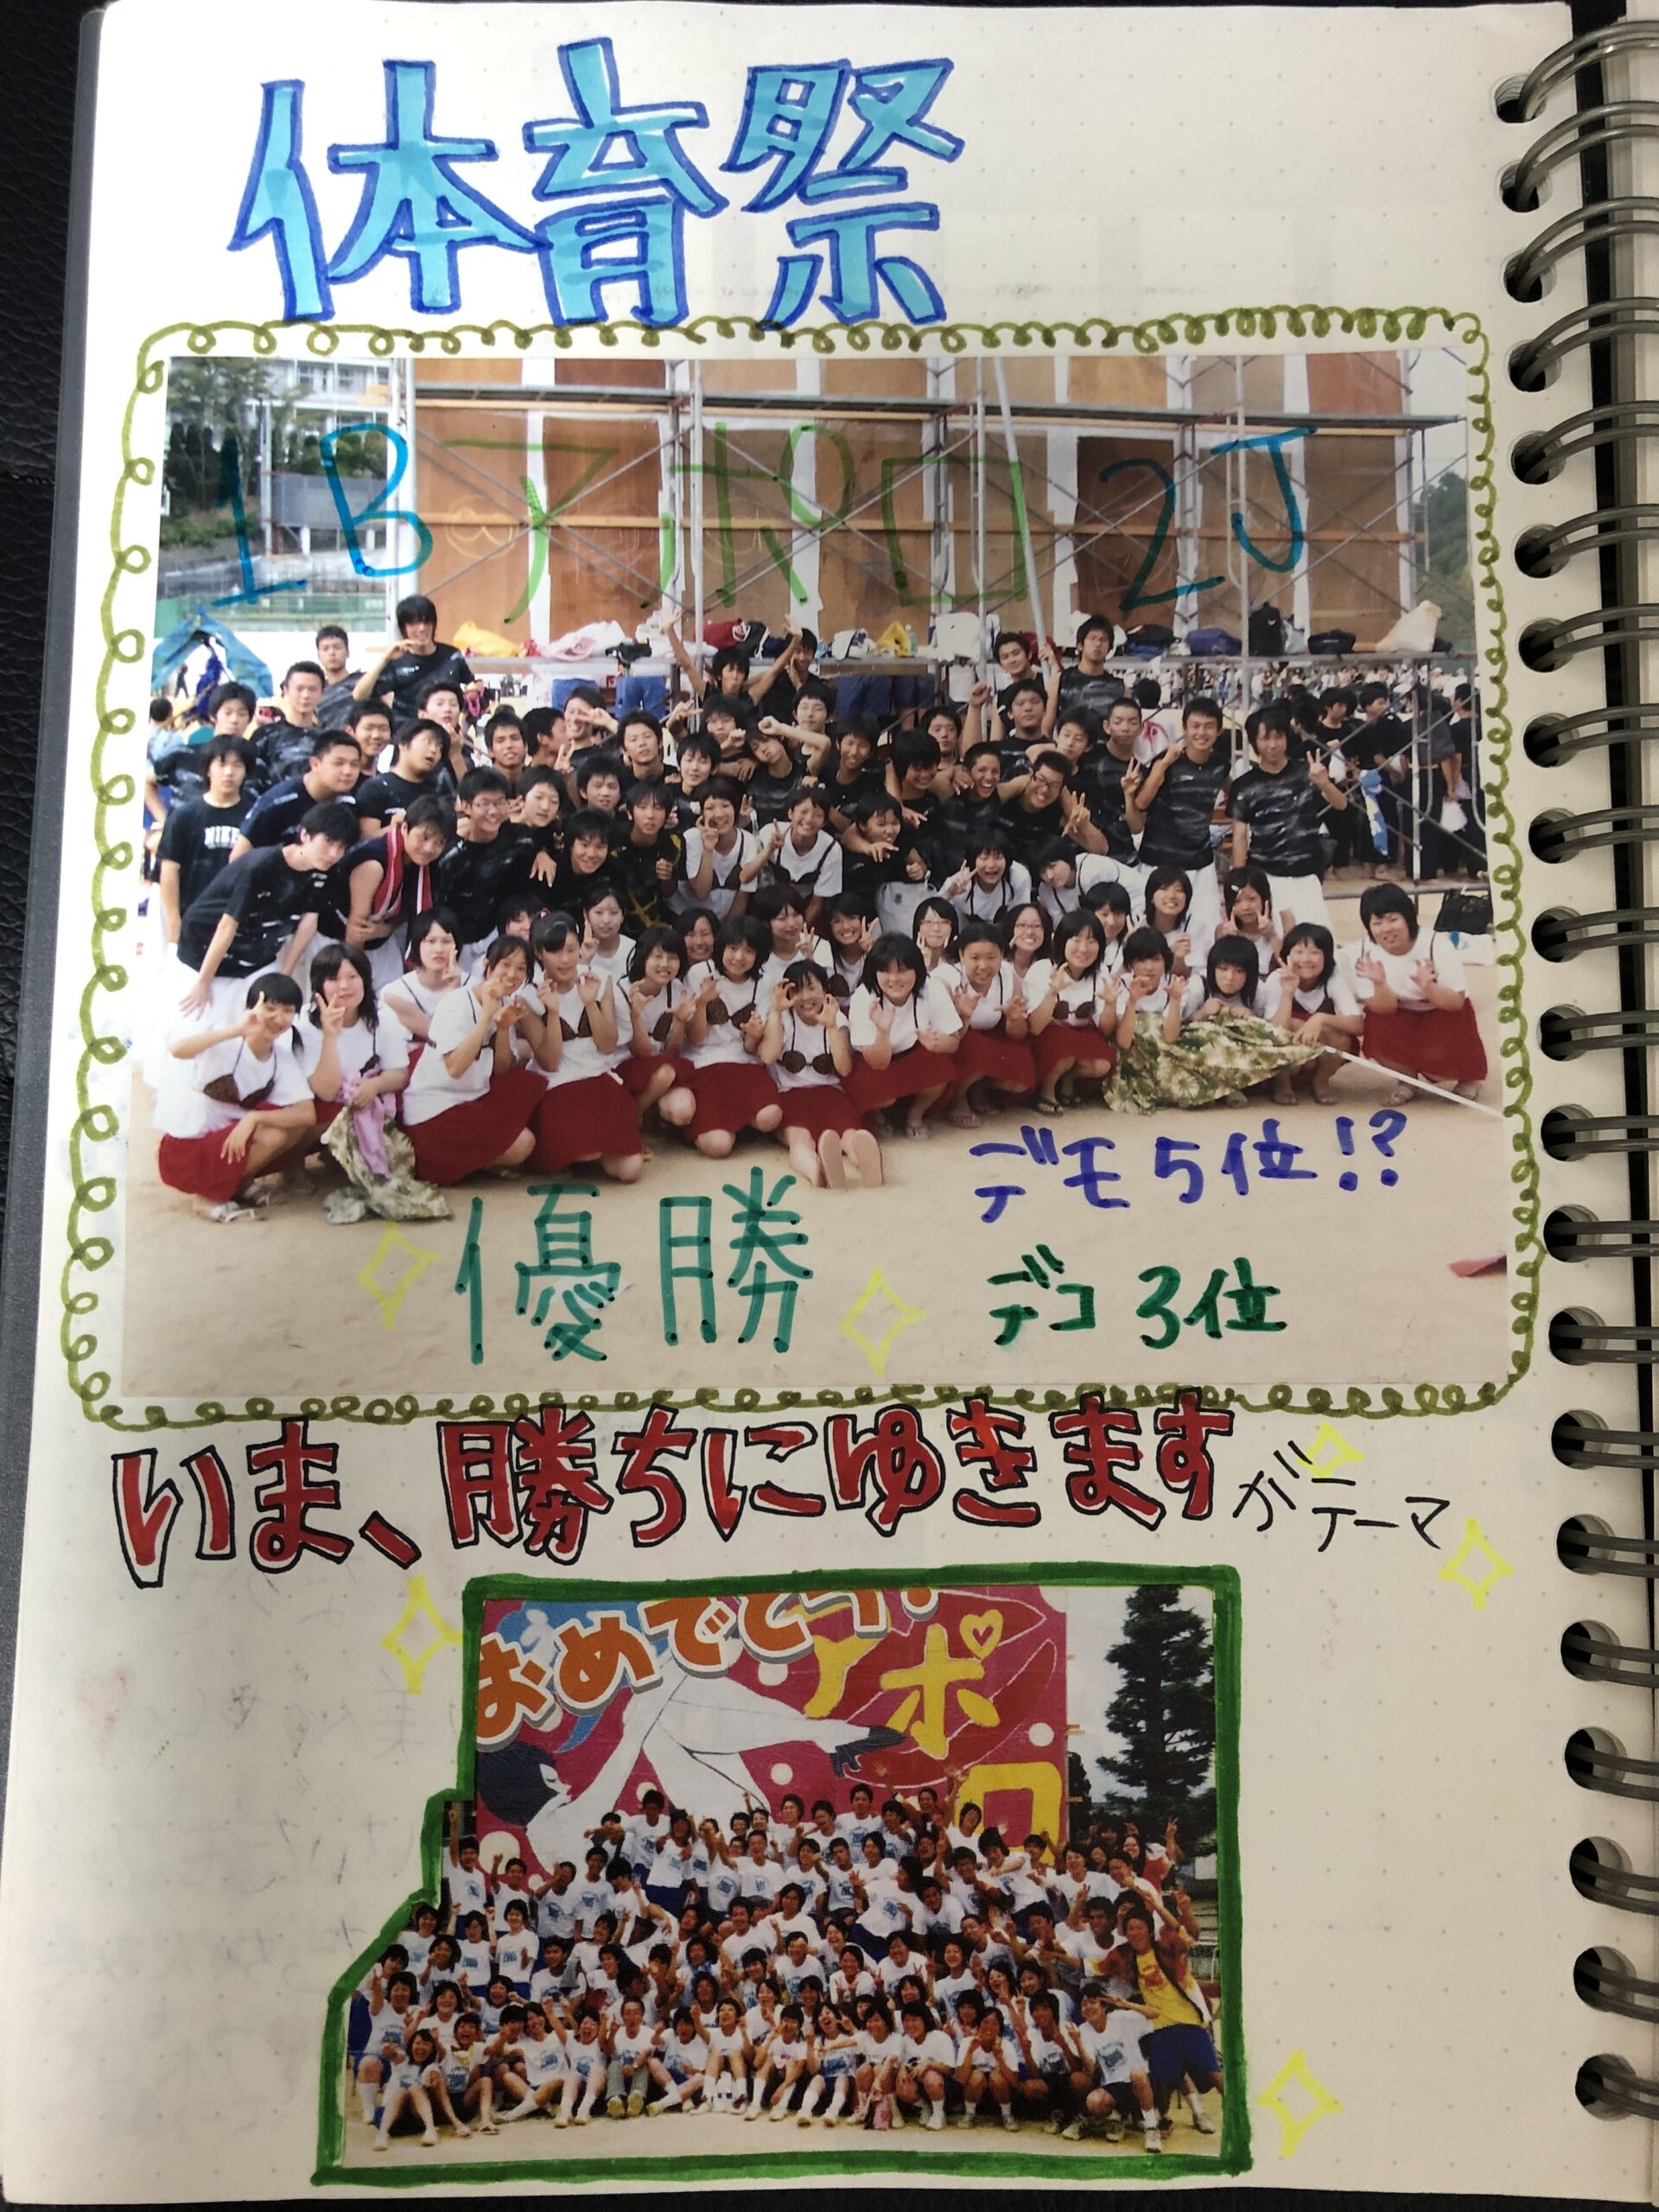 体育祭
1B アポロ 2J
NIKE
デモ5位!?
優勝
デコ3位
いま、勝ちにゆきますがテーマ
おめでとう!
アポロ